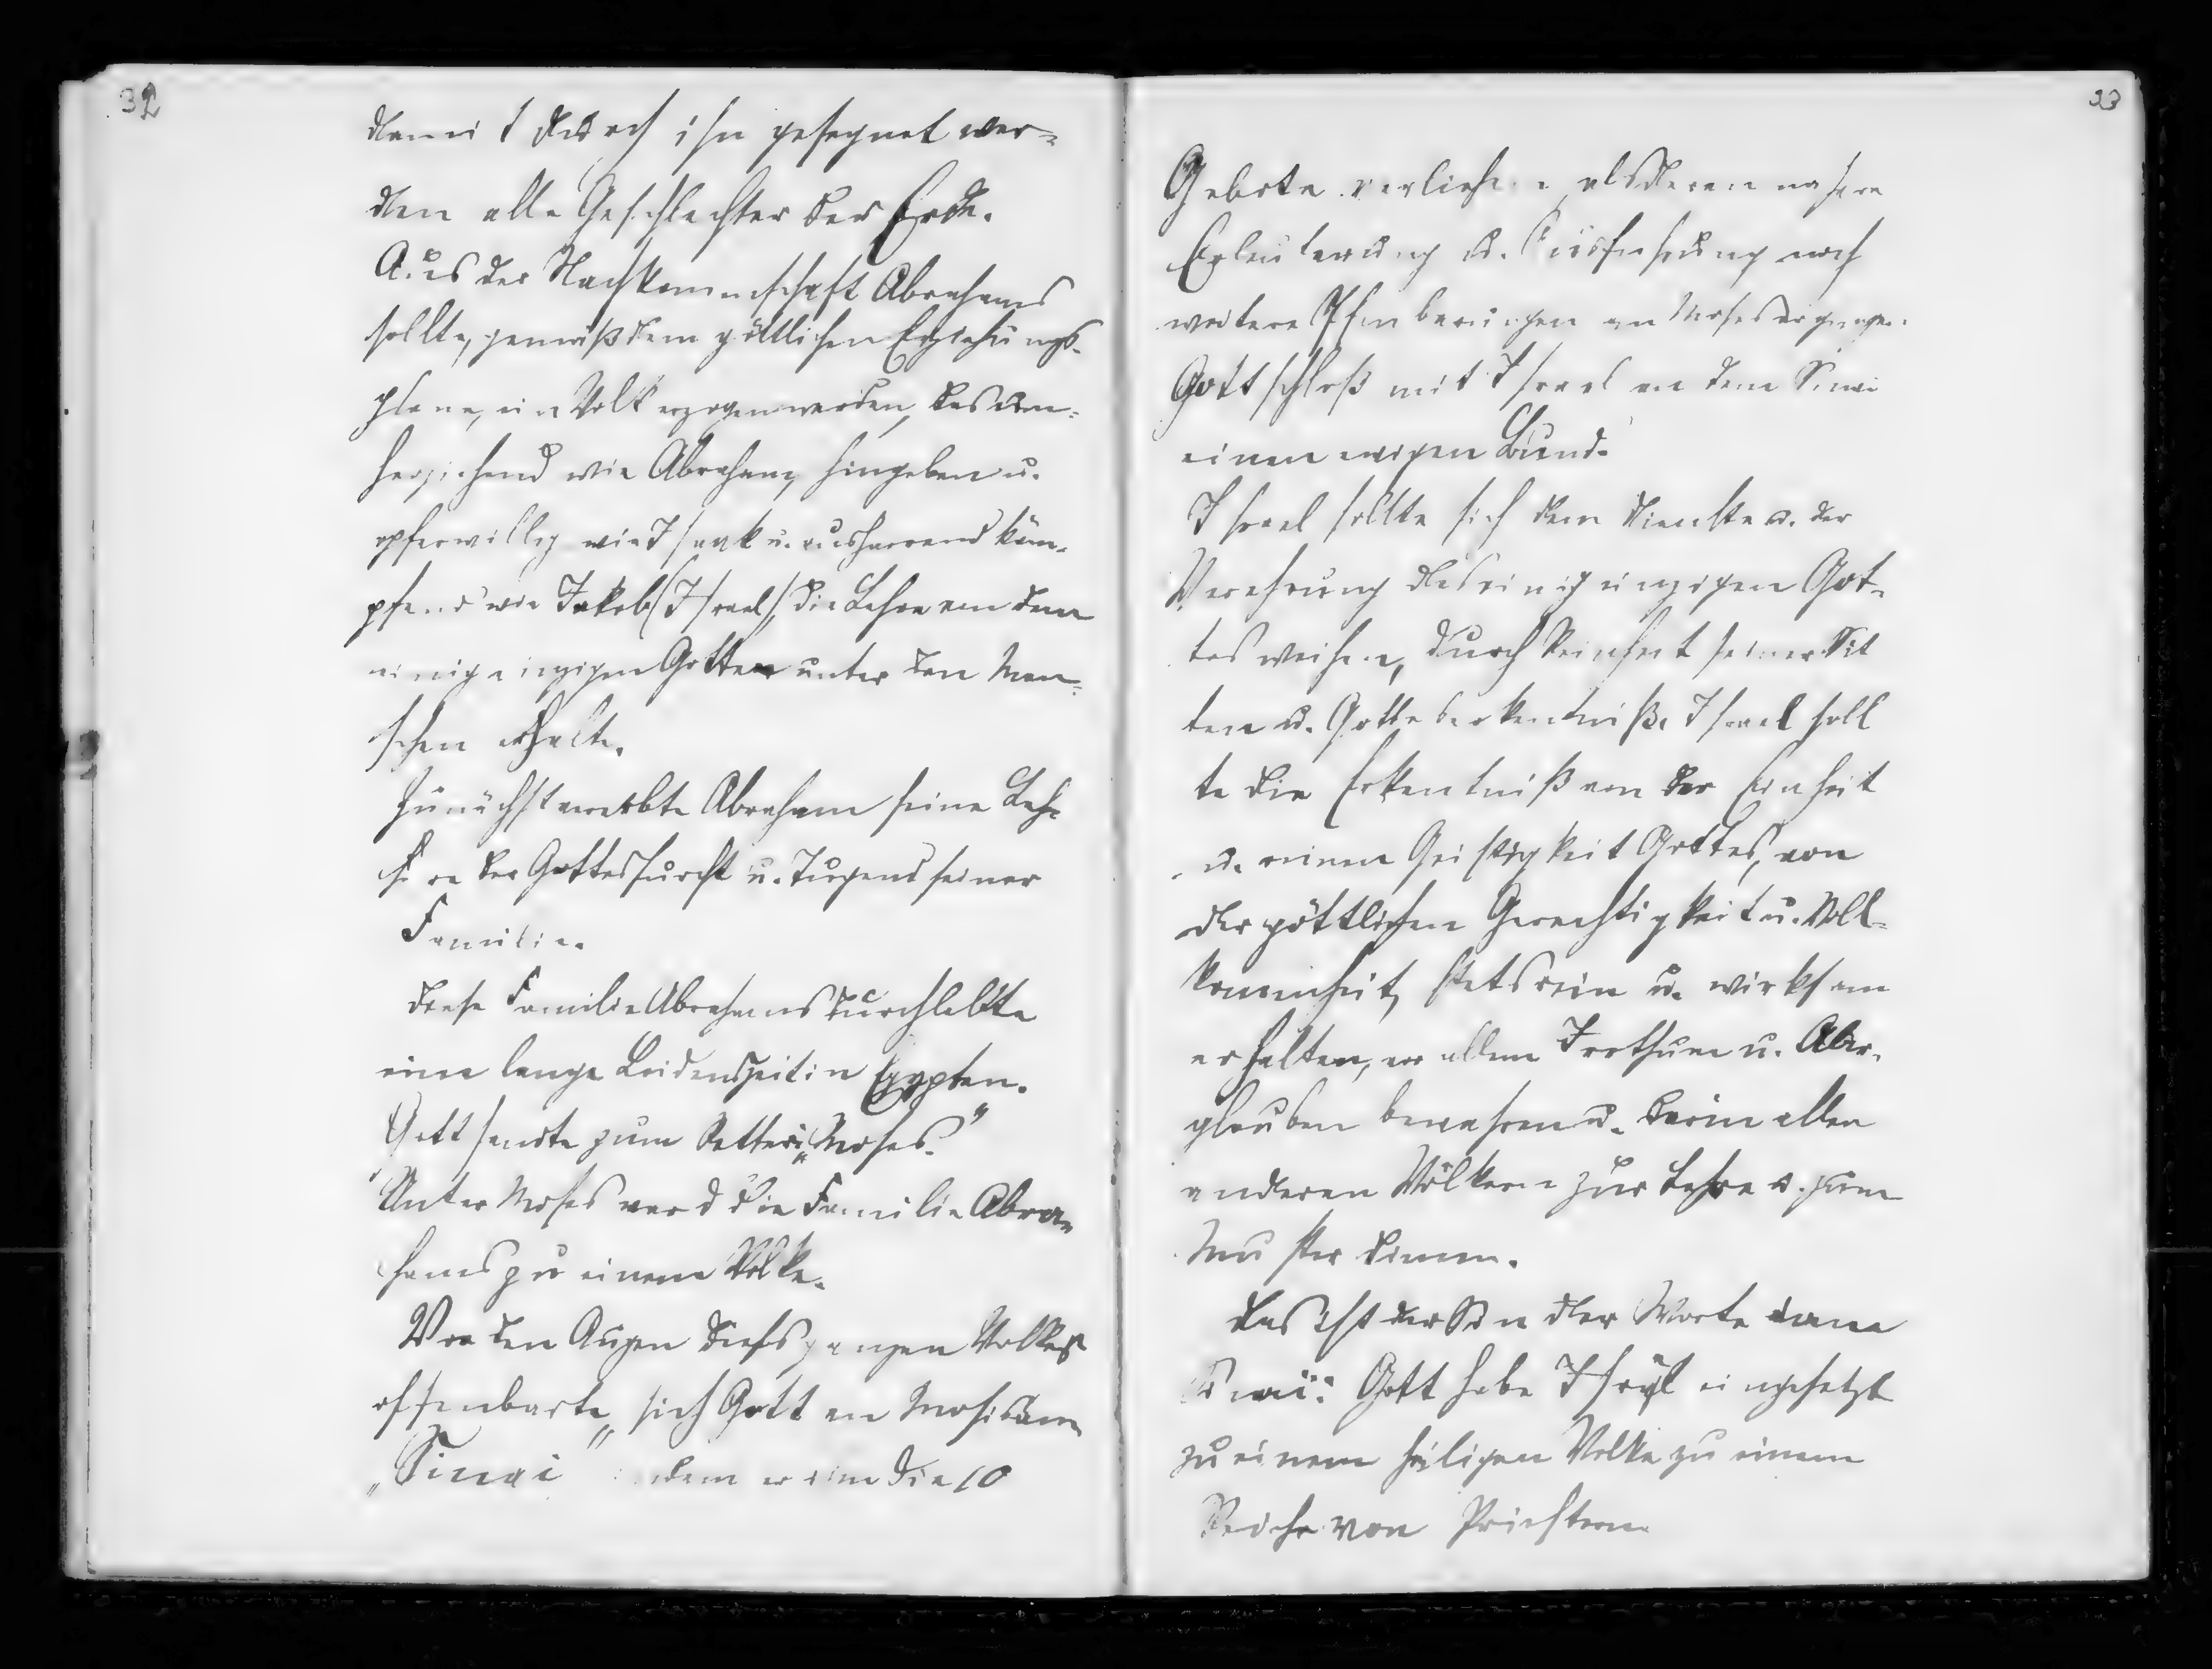 32
damit durch ihn gesegnet wer=
den alle Geschlechter der Erde.
Aus der Nachkommenschaft Abrahams
sollte, gemäß dem göttlichen Erziehungs-
plane, ein Volk erzogen werden, das um=
herziehend wie Abraham, hingeben u.
opferwillig wie Isaak u. ausharrend käm-
pfend wie Jakob (Israel), die Lehre von dem
einig einzigen Gotte unter den Men=
schen erhalte.
Zunächst vererbte Abraham seine Leh=
re der Gottesfurcht u. Tugend seiner
Familie.
Diese Familie Abrahams durchlebte
eine lange Leidenszeit in Egypten.
Gott sandte zum Retter „Moses."
Unter Moses ward die Familie Abra=
hams zu einem Volke.
Vor den Augen diess ganzen Volkes
offenbarte sich Gott an Moses am
„Sinai" indem er ihm die 10
33
Gebote verliehen, als deren nähere
Erläuterung u. Ausführung noch
weitere Offenbarungen an Moses ergingen.
Gott schloß mit Israel an dem Sinai
einen ewigen Bund.
Israel sollte sich dem Dienste u. der
Verehrung des einig einzigen Got=
tes weihen, durch Reinheit seiner Sit
ten u. Gotteserkentniß. Israel soll
te die Erkentniß von der Einheit
u. reinen Geistigkeit Gottes, von
der göttlichen Gerechtigkeit u. Voll=
kommenheit, stets rein u. wirksam
erhalten, vor allem Irrthum u. Aber-
glauben bewahren u. darin allen
anderen Völkern zur Lehre u. zum
Muster dienen.
Das ist der Sinn der Worte vom
Sinai: Gott habe Israel eingesetzt
zu einem heiligen Volke zu einem
Reiche von Priestern